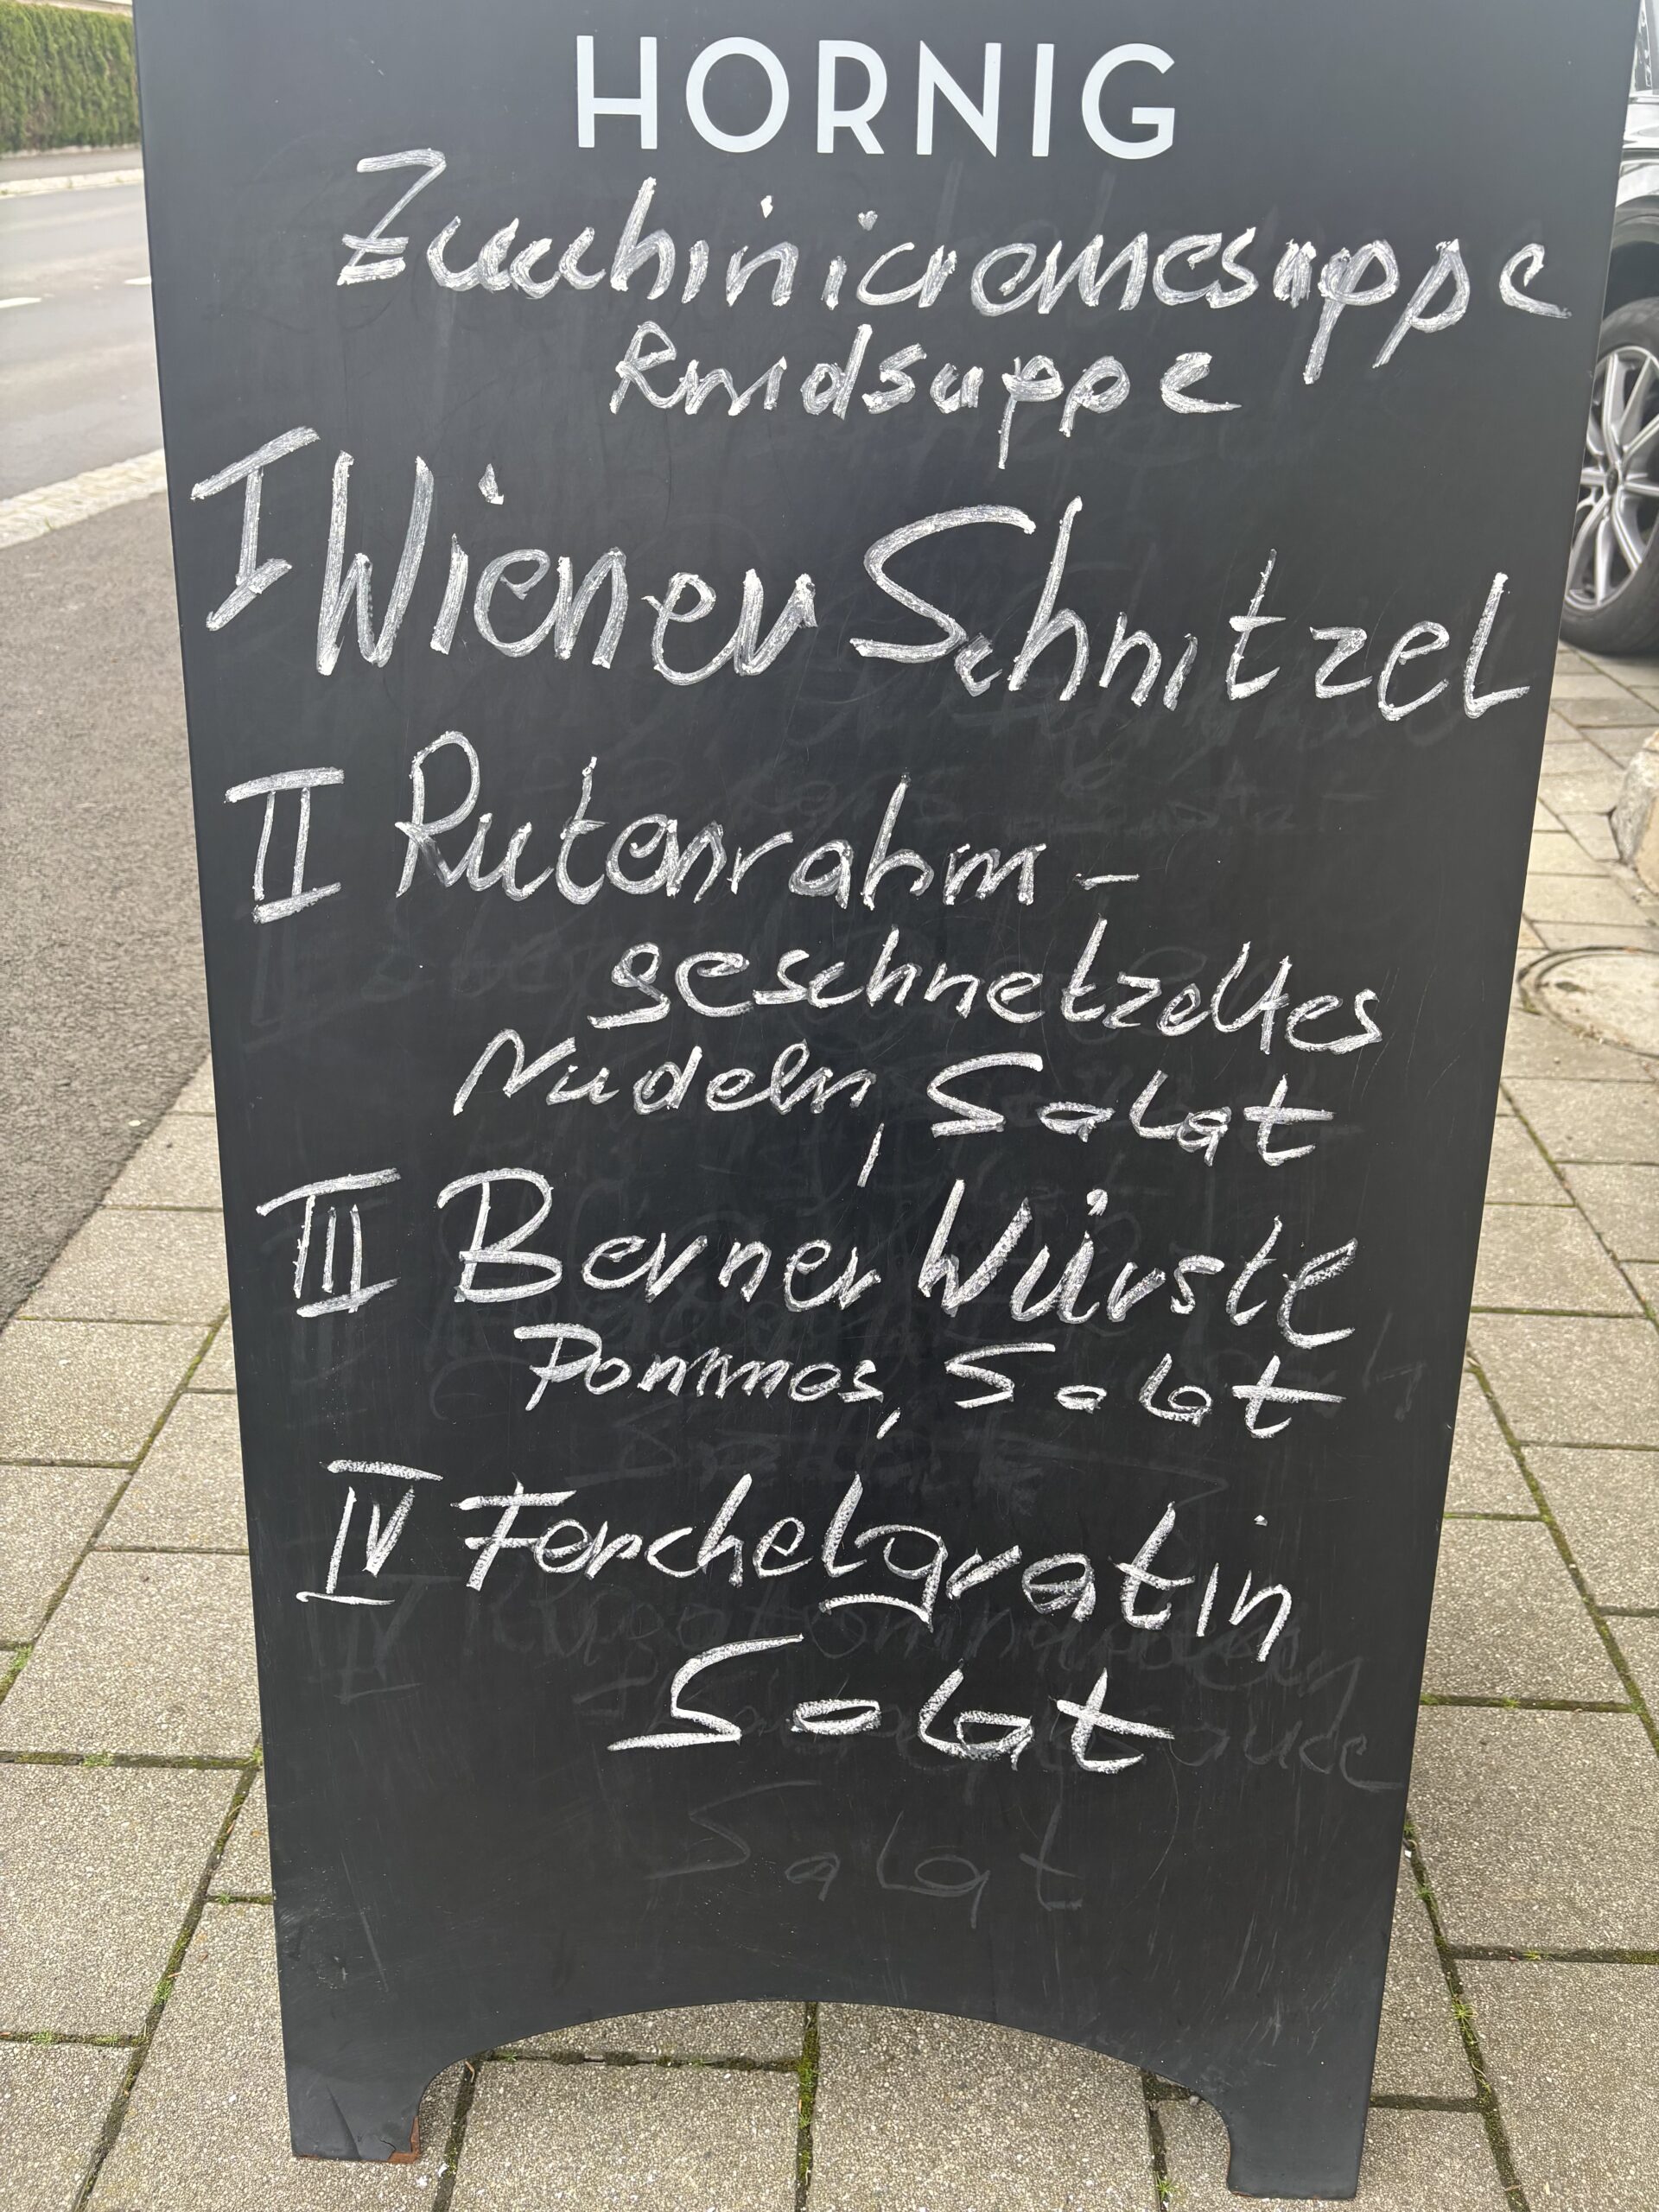 HORNIG
Zucchinicremesuppe
Rindsuppe
I Wiener Schnitzel
II Putenrahm-
geschnetzeltes
Nudeln, Salat
III Berner Würstl
Pommes, Salat
IV Fenchelgratin
Salat
Salat